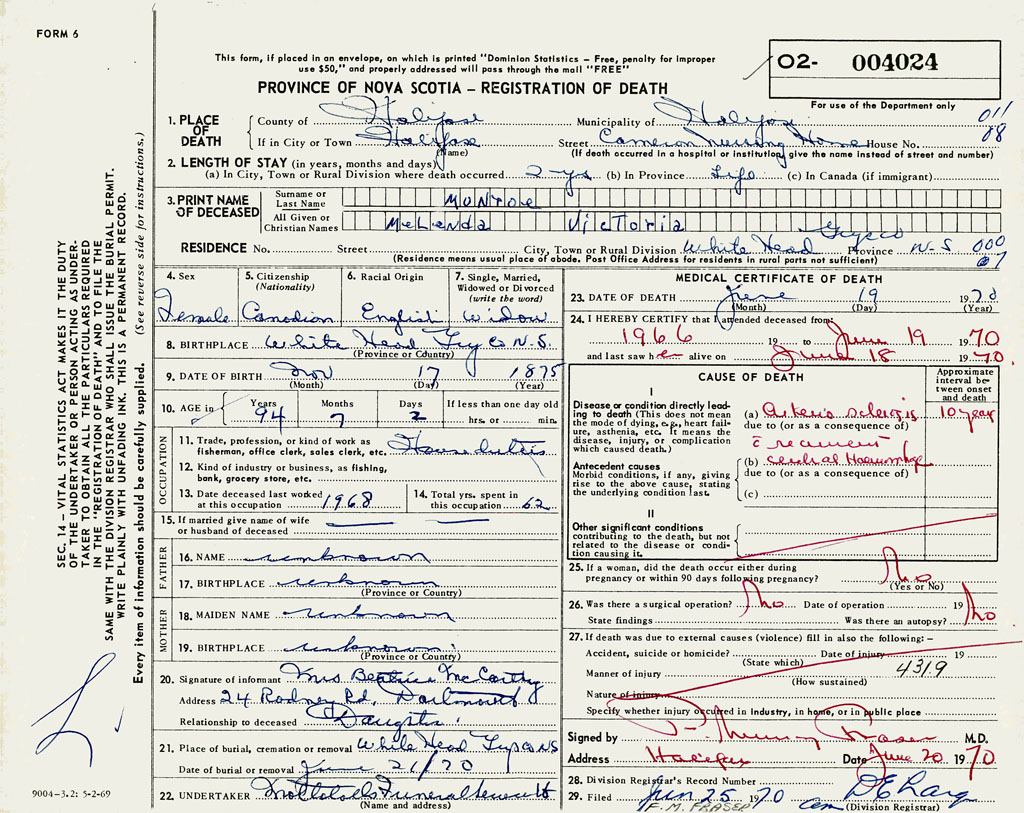 FORM 6
This form, if placed in an envelope, on which is printed "Dominion Statistics – Free, penalty for improper
use $50," and properly addressed will pass through the mail "FREE"
O2- 004024
PROVINCE OF NOVA SCOTIA – REGISTRATION OF DEATH
For use of the Department only
011
08
1. PLACE OF DEATH
County of Halifax Municipality of Halifax
If in City or Town Halifax Street Cameron Nursing Home House No.
(Name) (If death occurred in a hospital or institution, give the name instead of street and number)
2. LENGTH OF STAY (in years, months and days)
(a) In City, Town or Rural Division where death occurred 2 yrs (b) In Province Life (c) In Canada (if immigrant)
3. PRINT NAME OF DECEASED
Surname or Last Name Munroe
All Given or Christian Names Melenda Victoria
Guysco
RESIDENCE No. Street City, Town or Rural Division White Head Province N-S 000
(Residence means usual place of abode. Post Office Address for residents in rural parts not sufficient) 07
4. Sex Female
5. Citizenship (Nationality) Canadian
6. Racial Origin English
7. Single, Married, Widowed or Divorced (write the word) Widow
8. BIRTHPLACE White Head Guysco N.S.
(Province or Country)
9. DATE OF BIRTH Nov 17 1875
(Month) (Day) (Year)
10. AGE in Years 94 Months 7 Days 2 If less than one day old hrs. or min.
OCCUPATION
11. Trade, profession, or kind of work as
fisherman, office clerk, sales clerk, etc. House duties
12. Kind of industry or business, as fishing,
bank, grocery store, etc.
13. Date deceased last worked
at this occupation 1968
14. Total yrs. spent in
this occupation 62
15. If married give name of wife
or husband of deceased
FATHER
16. NAME unknown
17. BIRTHPLACE unknown
(Province or Country)
MOTHER
18. MAIDEN NAME unknown
19. BIRTHPLACE unknown
(Province or Country)
20. Signature of informant Mrs Beatrice McCarthy
Address 24 Rodney Rd, Dartmouth
Relationship to deceased Daughter
21. Place of burial, cremation or removal White Head Guysco NS
Date of burial or removal June 21/70
22. UNDERTAKER
(Name and address)
MEDICAL CERTIFICATE OF DEATH
23. DATE OF DEATH June 19 1970
(Month) (Day) (Year)
24. I HEREBY CERTIFY that I attended deceased from
1966 19 to June 19 1970
and last saw her alive on June 18 1970.
CAUSE OF DEATH
Approximate interval between onset and death
I
Disease or condition directly leading
to death (This does not mean
the mode of dying, e.g., heart failure,
asthenia, etc. It means the
disease, injury, or complication
which caused death.)
(a) Arteriosclerosis 10 year
due to (or as a consequence of)
c̄ recurrent
(b) cerebral Haemorrhage
due to (or as a consequence of)
Antecedent causes
Morbid conditions, if any, giving
rise to the above cause, stating
the underlying condition last.
(c)
II
Other significant conditions
contributing to the death, but not
related to the disease or condition
causing it.
25. If a woman, did the death occur either during
pregnancy or within 90 days following pregnancy? No
(Yes or No)
26. Was there a surgical operation? No Date of operation 19
State findings Was there an autopsy? No
27. If death was due to external causes (violence) fill in also the following: –
Accident, suicide or homicide? Date of injury 19
(State which)
Manner of injury 4319
(How sustained)
Nature of injury
Specify whether injury occurred in industry, in home, or in public place
Signed by Murray Fraser M.D.
Address Halifax Date June 20 1970
28. Division Registrar's Record Number
29. Filed Jun 25 1970
F. M. FRASER (Division Registrar)
SEC. 14 – VITAL STATISTICS ACT MAKES IT THE DUTY
OF THE UNDERTAKER OR PERSON ACTING AS UNDERTAKER
TO OBTAIN ALL THE PARTICULARS REQUIRED
IN THE "REGISTRATION OF DEATH" AND TO FILE THE
SAME WITH THE DIVISION REGISTRAR WHO SHALL ISSUE THE BURIAL PERMIT.
WRITE PLAINLY WITH UNFADING INK. THIS IS A PERMANENT RECORD.
Every item of information should be carefully supplied. (See reverse side for instructions.)
9004-3.2: 5-2-69